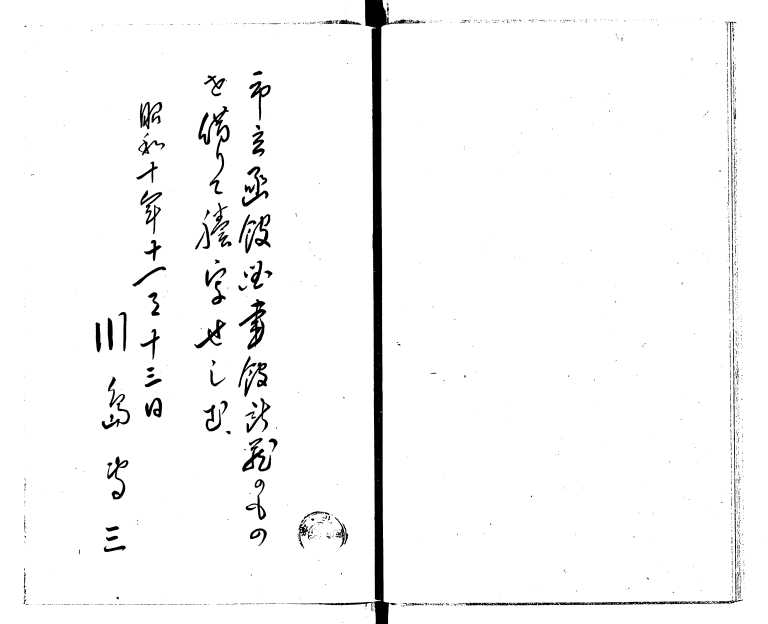 市立函館図書館所蔵のもの
を借りて謄写せしむ、
昭和十年十一月十三日
川島 三